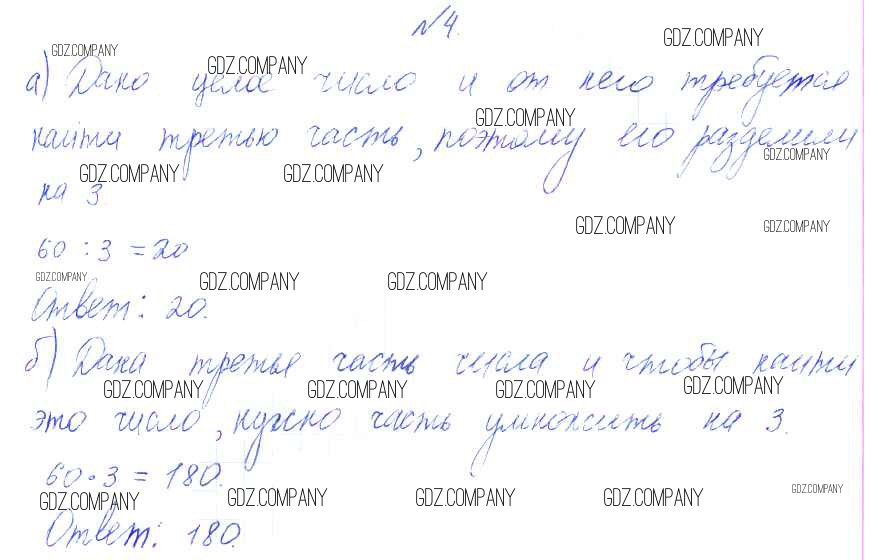 №4.
GDZ.COMPANY GDZ.COMPANY GDZ.COMPANY
а) Дано целое число и от него требуется
GDZ.COMPANY
найти третью часть, поэтому его разделили
GDZ.COMPANY
GDZ.COMPANY GDZ.COMPANY
на 3.
GDZ.COMPANY GDZ.COMPANY
60 : 3 = 20
GDZ.COMPANY GDZ.COMPANY GDZ.COMPANY
Ответ: 20.
б) Дана третья часть числа и чтобы найти
GDZ.COMPANY GDZ.COMPANY GDZ.COMPANY GDZ.COMPANY
это число, нужно часть умножить на 3.
60 · 3 = 180.
GDZ.COMPANY GDZ.COMPANY GDZ.COMPANY GDZ.COMPANY GDZ.COMPANY
Ответ: 180.